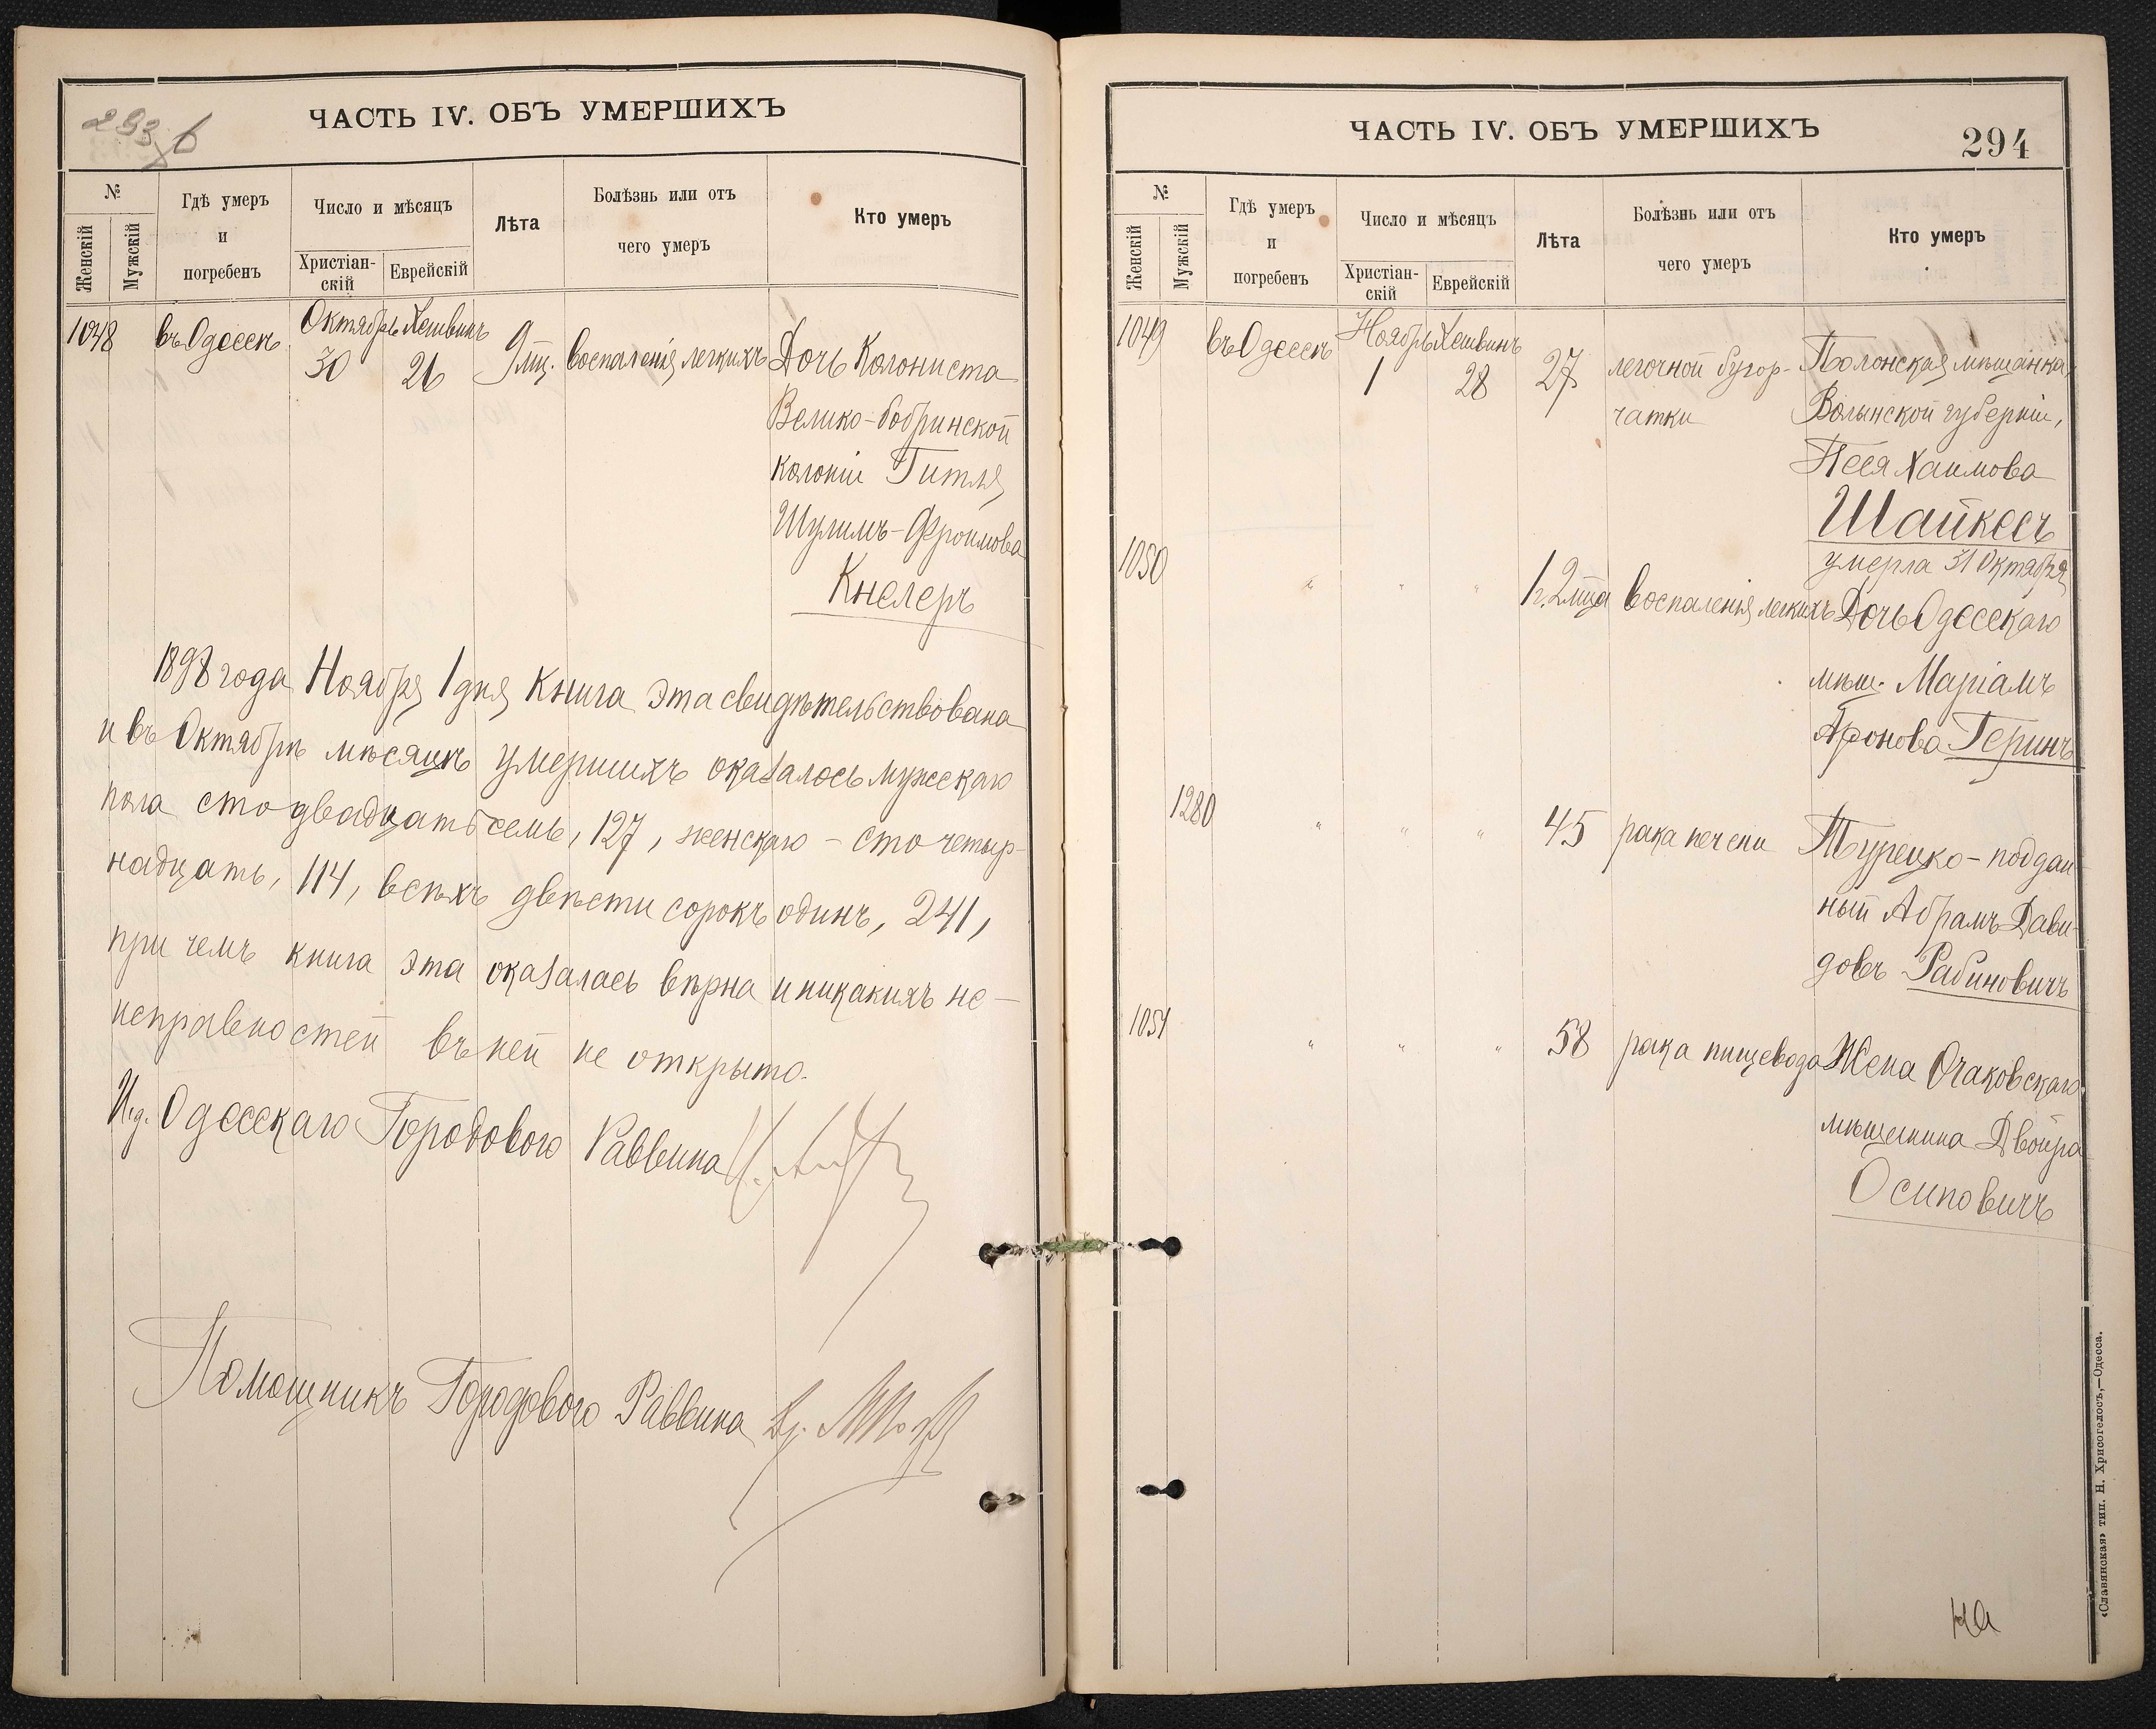 293 б
ЧАСТЬ IV. ОБЪ УМЕРШИХЪ
№
Женскій
Мужскій
Гдѣ умеръ
и
погребенъ
Число и мѣсяцъ
Христіан-
скій
Еврейскій
Лѣта
Болѣзнь или отъ
чего умеръ
Кто умеръ
1048
въ Одессѣ
Октябрь
30
Хешвинъ
26
9 мц.
воспаленія легкихъ
Дочь Колониста
Велико-бобринской
колоніи Гитля
Шулимъ-Фроимова
Кнелеръ
1898 года Ноября 1 дня Книга эта свидѣтельствована
и въ Октябрѣ мѣсяцѣ умершихъ оказалось мужскаго
пола сто двадцать семь, 127, женскаго - сто четыр-
надцать, 114, всѣхъ двѣсти сорокъ одинъ, 241,
при чемъ книга эта оказалась вѣрна и никакихъ не-
исправностей въ ней не открыто.
И.д. Одесскаго Городового Раввина
Помощникъ Городового Раввина
ЧАСТЬ IV. ОБЪ УМЕРШИХЪ
294
№
Женскій
Мужскій
Гдѣ умеръ
и
погребенъ
Число и мѣсяцъ
Христіан-
скій
Еврейскій
Лѣта
Болѣзнь или отъ
чего умеръ
Кто умеръ
1049
въ Одессѣ
Ноябрь
1
Хешвинъ
28
27
легочной бугор-
чатки
Полонская мѣщанка,
Волынской губерніи,
Песя Хаимова
Шайкесъ
умерла 31 Октября
1050
" " "
1 г. 2 мца
воспаленія легкихъ
Дочь Одесскаго
мѣщ. Маріамъ
Аронова Геринъ
1280
" " "
45
рака печени
Турецко-поддан-
ный Абрамъ Дави-
довъ Рабиновичъ
1051
" " "
58
рака пищевода
Жена Очаковскаго
мѣщанина Двойра
Осиповичъ
на
«Славянская» тип. Н. Хрисогелосъ,—Одесса.